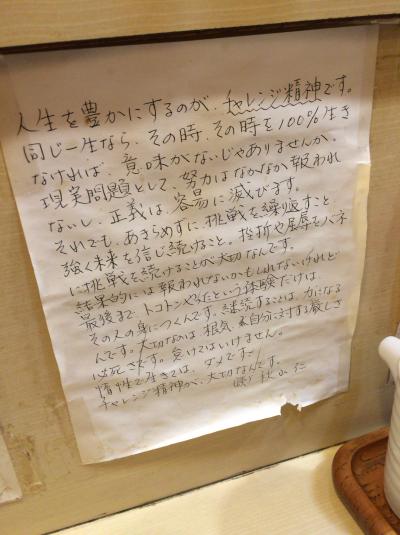 人生を豊かにするのが、チャレンジ精神です。
同じ一生なら、その時、その時を100%生き
なければ、意味がないじゃありませんか。
現実問題として、努力はなかなか報われ
ないし、正義は、容易に滅びます。
それでも、あきらめずに、挑戦を繰り返すこと、
強く未来を信じ続けること。挫折や屈辱をバネ
に挑戦を続けることが大切なんです。
結果的には報われないかもしれないけれど
最後まで、トコトンやったという体験だけは、
その人の身につくんです。継続することは、力になる
んです。大切なのは、根気、自分に対する厳しさ
必死さです。怠けてはいけません。
惰性で生きては、ダメです
チャレンジ精神が、大切なんです。